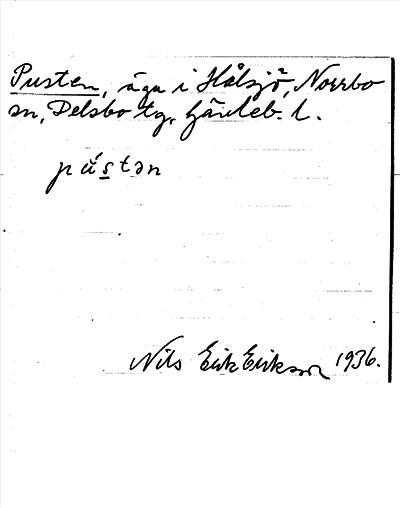 Pusten, äga i Hålsjö², Norrbo
sn, Delsbo tg, Gävleb. l.
pústən
Nils Erik Erikson 1936.